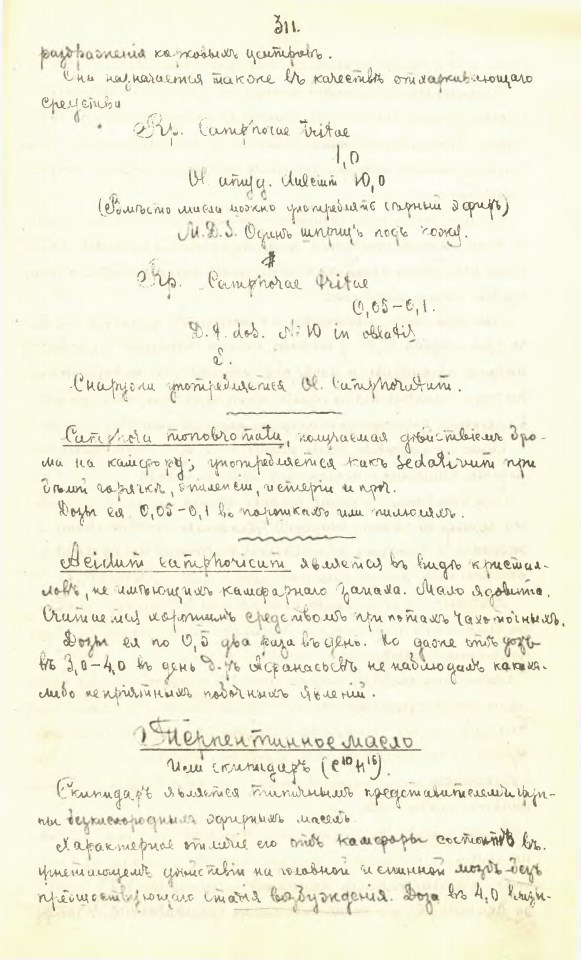 311.
раздраженiя корковыхъ центровъ.
Она назначается также въ качествѣ отхаркивающаго
средства
Rp. Camphorae tritae
1,0
Ol. amygd. dulcium 10,0
(Вмѣсто масла можно употреблять сѣрный эфиръ)
M.D.S. Одинъ шприцъ подъ кожу.
#
Rp. Camphorae tritae
0,05–0,1.
D. t. dos. № 10 in oblatis
S.
Снаружи употребляется Ol. Camphoratum.
Camphora monobromata, получаемая дѣйствiемъ бро-
ма на камфору; употребляется какъ sedativum при
бѣлой горячкѣ, эпилепсiи, истерiи и проч.
Дозы ея 0,05–0,1 въ порошкахъ или пилюляхъ.
Acidum camphoricum является въ видѣ кристал-
ловъ, не имѣющихъ камфарнаго запаха. Мало ядовита.
Считается хорошимъ средствомъ при потахъ чахоточныхъ.
Дозы ея по 0,5 два раза въ день. Но даже отъ дозъ
въ 3,0–4,0 въ день д-ръ Афанасьевъ не наблюдалъ какихъ-
либо непрiятныхъ побочныхъ явленiй.
Терпентинное масло
или скипидаръ (C10H16).
Скипидаръ является типичнымъ представителемъ груп-
пы безкислородныхъ эфирныхъ маселъ.
Характерное отличiе его отъ камфоры состоитъ въ
угнетающемъ дѣйствiи на головной и спинной мозгъ безъ
предшествующаго стадiя возбужденiя. Доза въ 4,0